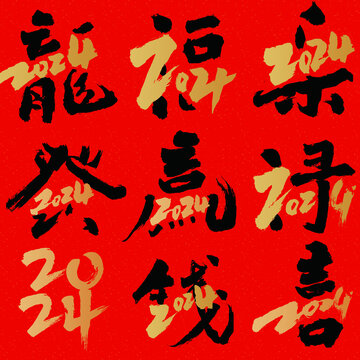 龍 2024 福 2024 樂 2024
發 2024 贏 2024 禄 2024
20
24 錢 2024 喜 2024